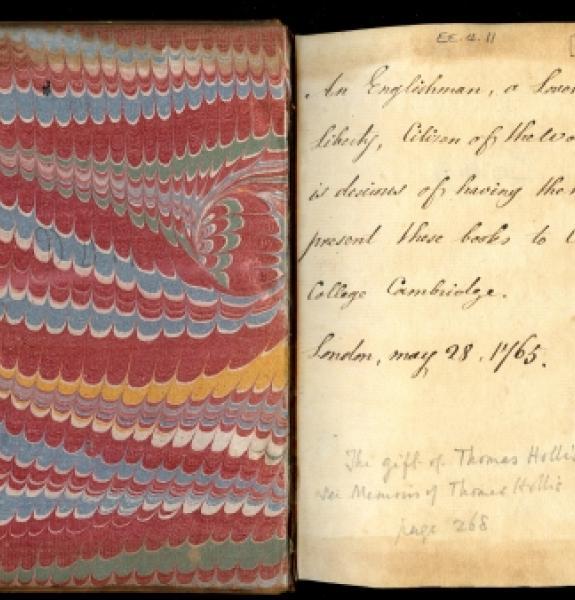 EE.4.11
An Englishman, a Lover
liberty, Citizen of the Wo
is desirous of having the
present these books to
College Cambridge.
London, may 28. 1765.
The gift of Thomas Hollis
see Memoirs of Thomas Hollis
page 268